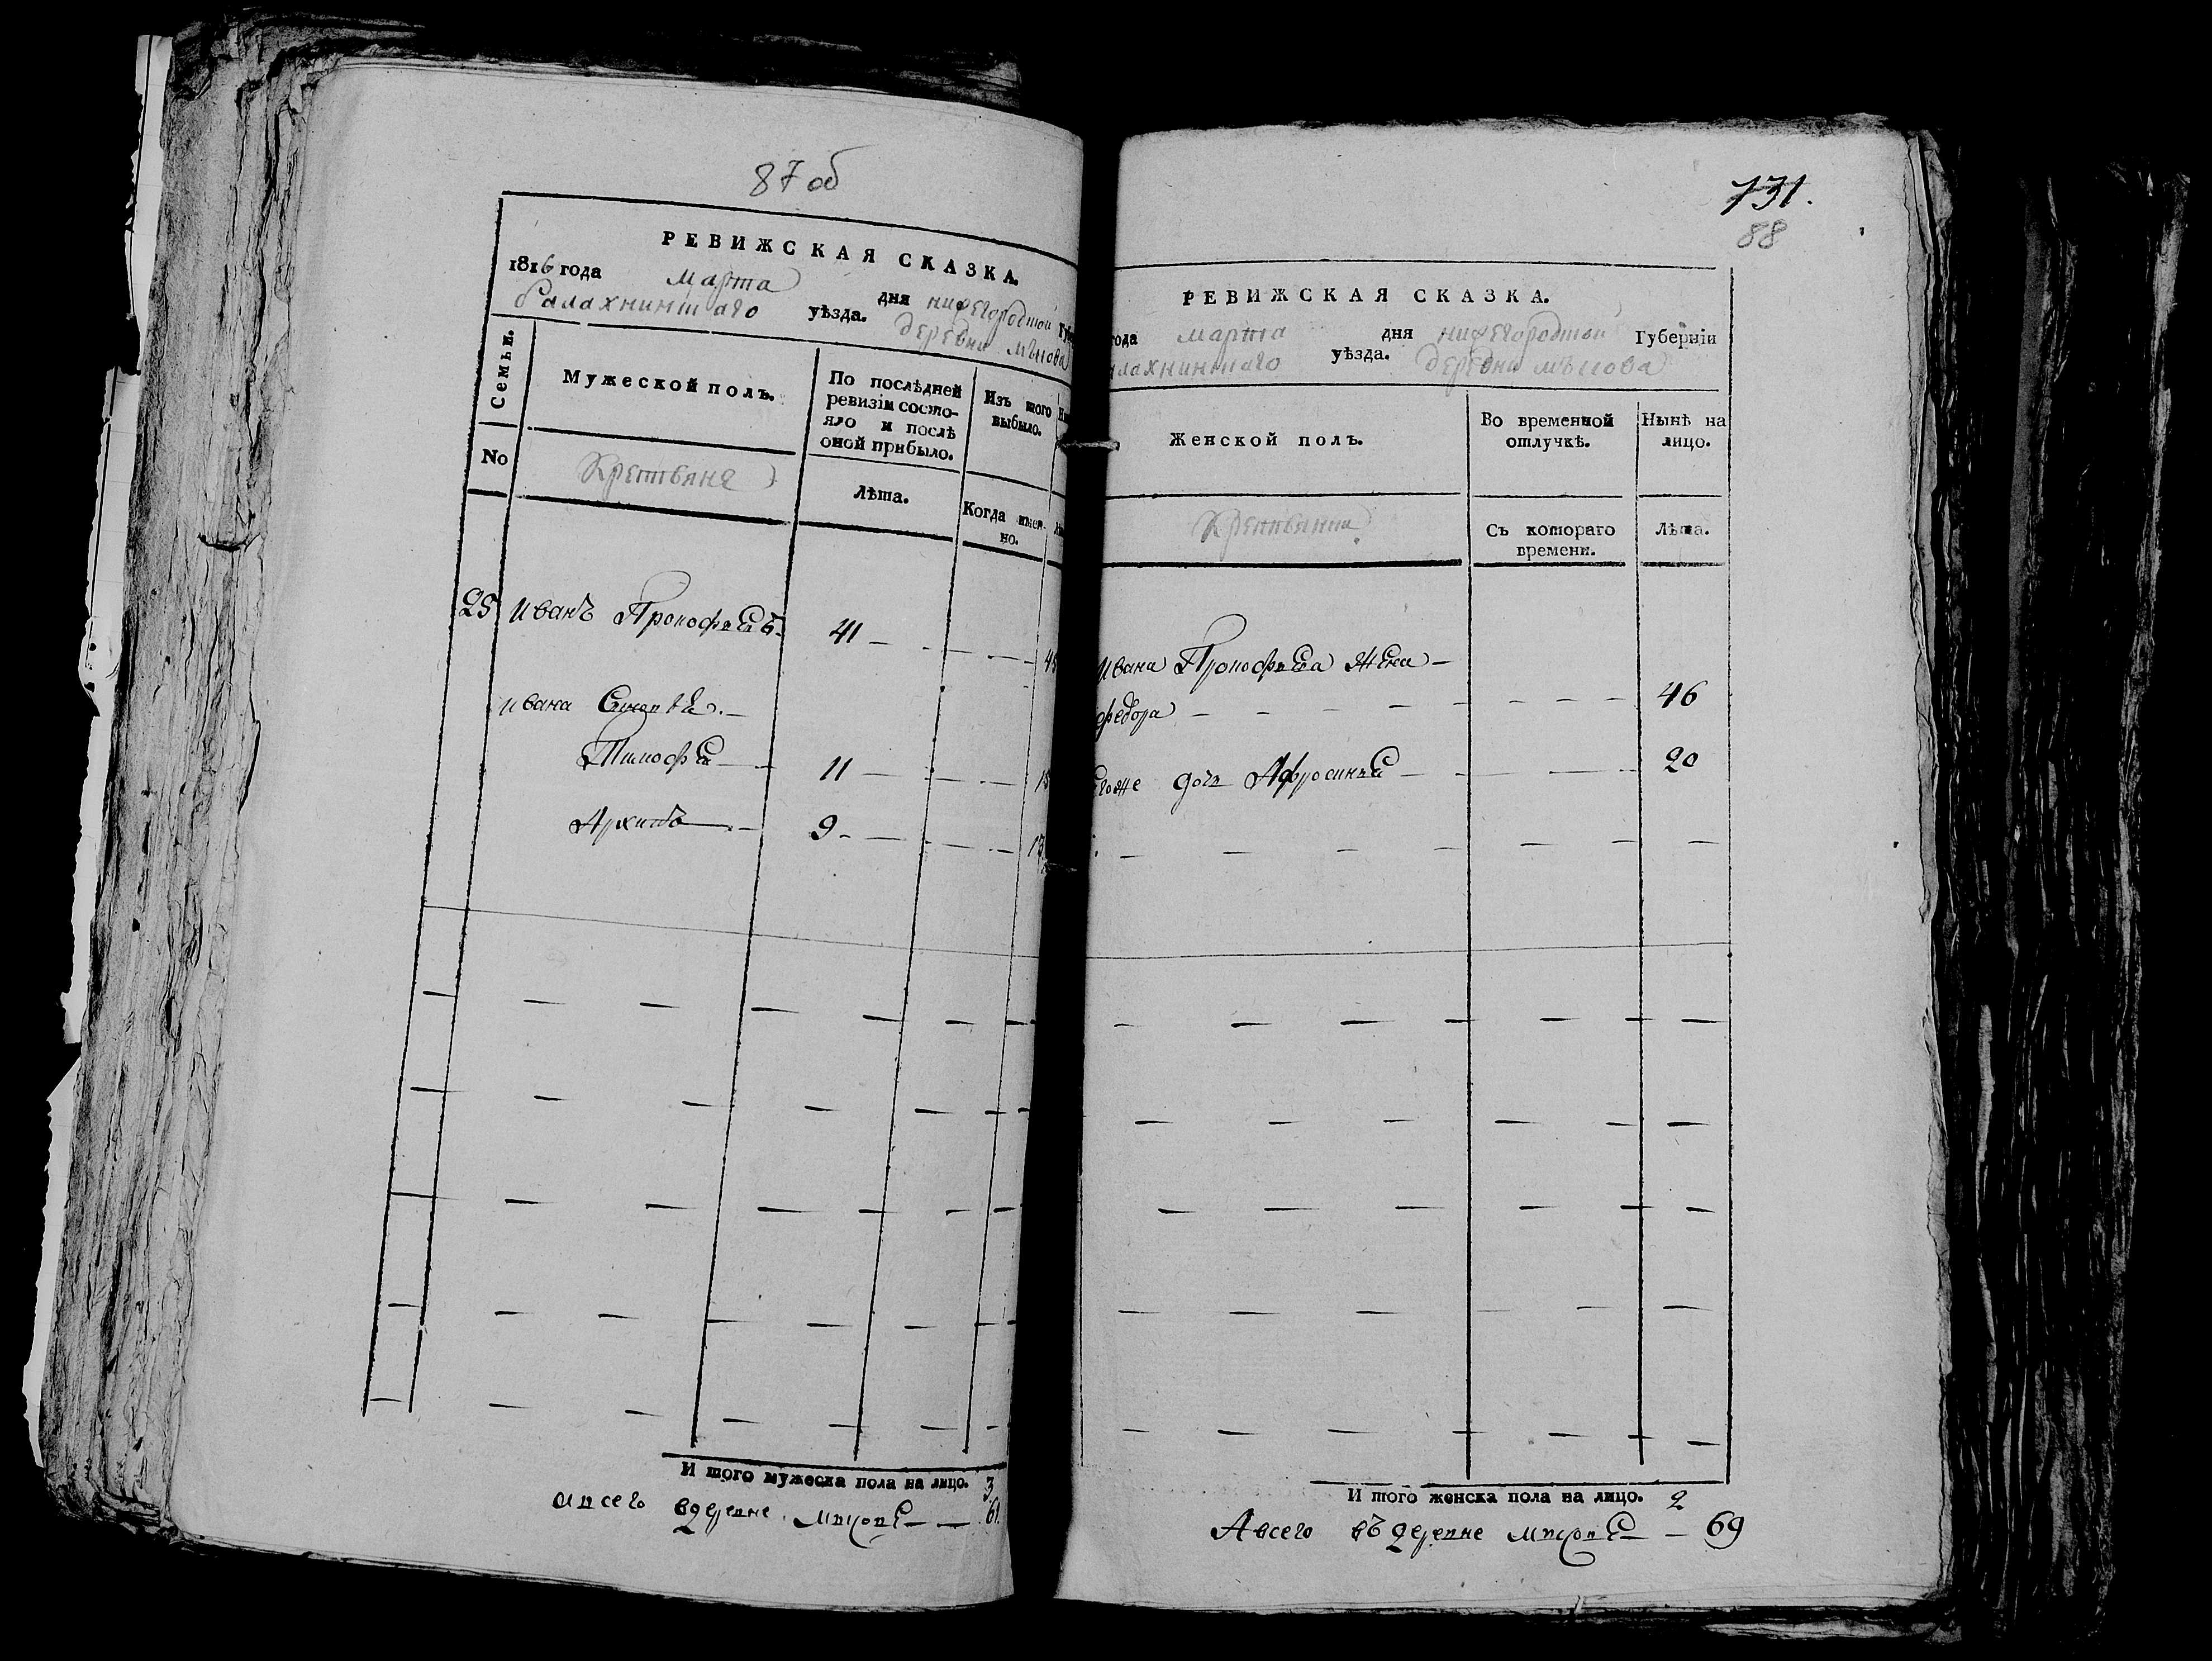 87 об
РЕВИЖСКАЯ СКАЗКА.
1816 года марта дня нижегородской Губе
балахнинскаго уѣзда. деревни мысова
Семьи.
No
Мужеской полъ.
Крестьяне
По послѣдней
ревизіи состо-
яло и послѣ
оной прибыло.
Лѣта.
Изъ того
выбыло.
Когда имен-
но.
25 иванъ Прокофьевъ 41 45
ивана Сыновья
Тимофей 11 15
Архипъ 9 13
И того мужеска пола на лицо. 3
а всего в деревне мысове 61
731.
88
РЕВИЖСКАЯ СКАЗКА.
года марта дня нижегородской Губерніи
алахнинскаго уѣзда. деревни мысова
Женской полъ.
Крестьянки
Во временной
отлучкѣ.
Съ котораго
времени.
Нынѣ на
лицо.
Лѣта.
ивана Прокофьева жена
федора 46
Его же дочь Афросинья 20
И того женска пола на лицо. 2
А всего въ деревне мысове 69